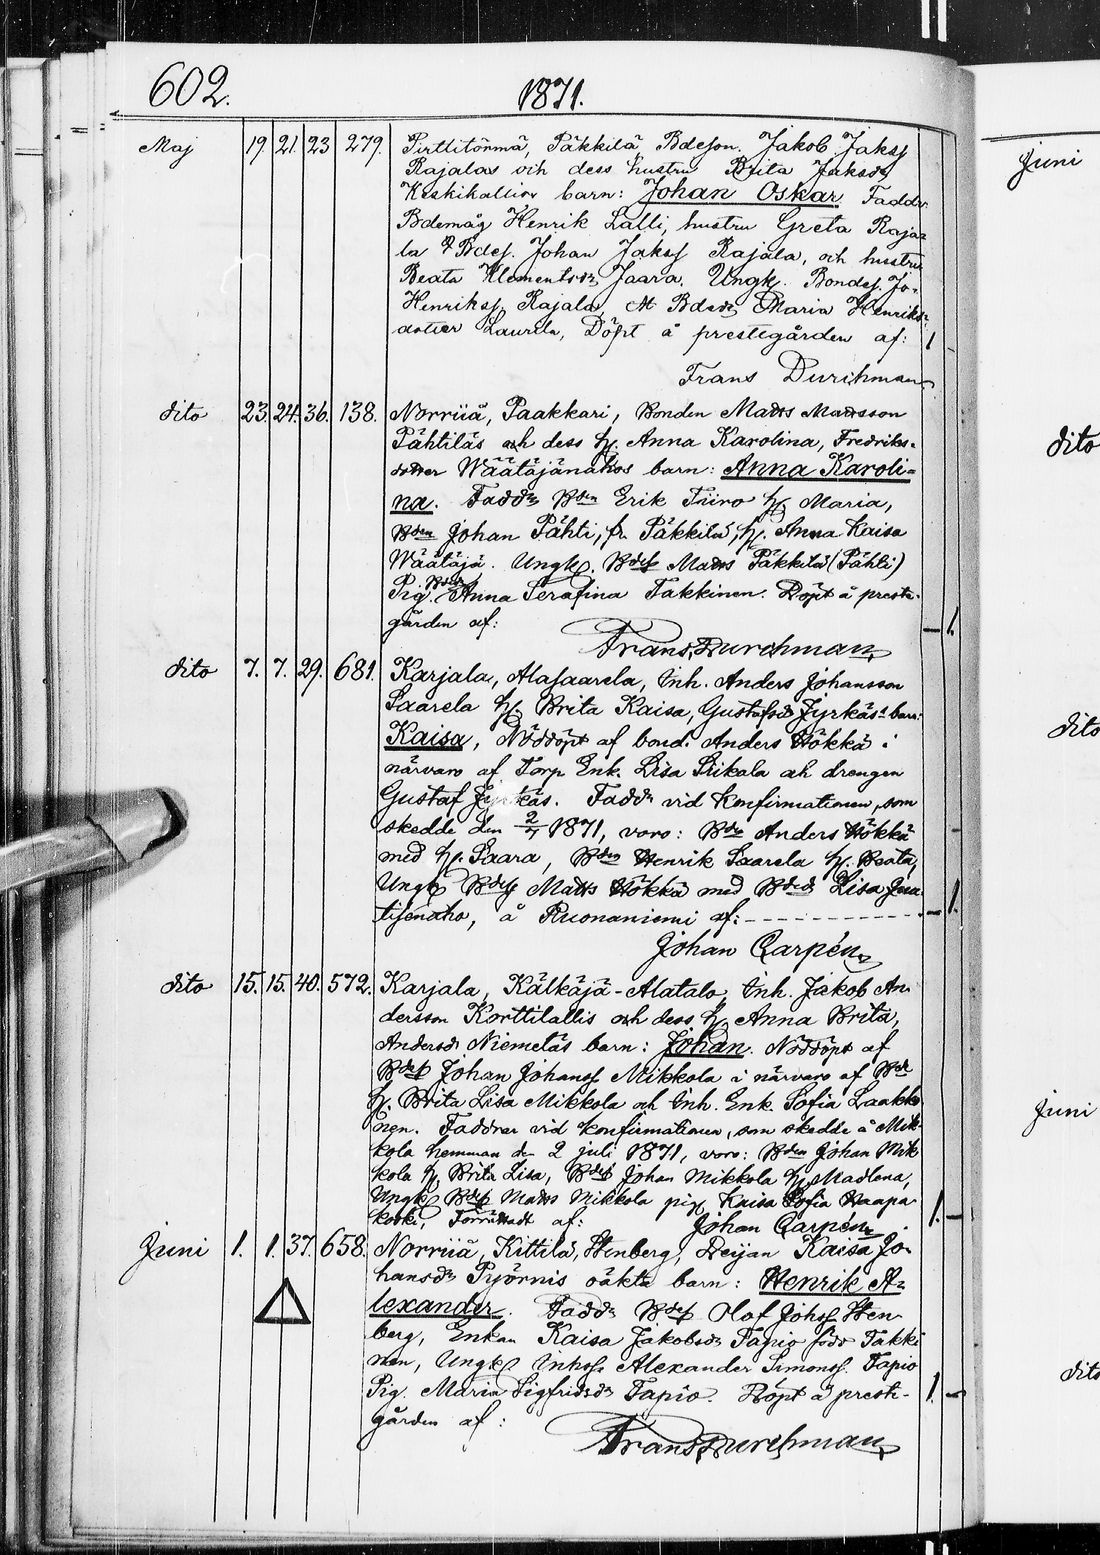 602.
1871.
Maj 19. 21. 23 279. Pirttitörmä, Päkkilä Bdeson. Jakob Jaksf
Rajalas och dess hustru Brita Jaksdr
Keskikallios barn: Johan Oskar. Faddr
Bdemåg Henrik Lalli, hustru Greta Raja=
la & Bdes. Johan Jaksf Rajala, och hustru
Beata Klementsdr Jaara. Ungk. Bondes. Jo.
Henriksf Rajala, & Bdedr Maria Henriks=
dotter Laurila, Döpt å prestegården af: 1 -
Frans Durchman
dito 23. 24. 36. 138. Norriiå, Paakkari, Bonden Matts Mattsson
Pähtiläs och dess h. Anna Karolina, Fredriks=
dotter Wäätäjänahos barn: Anna Karoli=
na. Faddr Bden Erik Tiiro h. Maria,
Bden Johan Pähti, fr. Päkkilä, h. Anna Kaisa
Wäätäjä. Ungk. Bdes Matts Päkkilä (Pähti)
Pig. Bdedr Anna Serafina Takkinen. Döpt å preste-
gården af: - 1.
Frans Durchman
dito 7. 7. 29. 681. Karjala, Alasaarela, Inh. Anders Johansson
Saarela h. Brita Kaisa, Gustafsdr Jyrkäs barn:
Kaisa, Nöddöpt af bond. Anders Hökkä i
närvaro af Torp Enk. Lisa Siikala och drengen
Gustaf Jyrkäs. Faddr vid konfirmationen, som
skedde den 2/7 1871, voro: Bden Anders Hökkä
med h. Saara, Bden Henrik Saarela h. Beata,
Ungk Bdes Matts Hökkä med Bdedr Lisa
å Ruonaniemi af: - 1.
Johan Carpén
dito 15. 15. 40. 572. Karjala, Kälkäjä-Alatalo, Inh. Jakob An
dersson Korttilallis och dess h. Anna Brita,
Andersdr Niemeläs barn: Johan. Nöddöpt af
Bdes Johan Johansf Mikkola i närvaro af Bde
h. Brita Lisa Mikkola och Inh. Enk. Sofia Laakko
nen. Faddrar vid konfirmationen, som skedde å Mik
kola hemman den 2 juli 1871, voro: Bden Johan Mik
kola h. Brita Lisa, Bdes Johan Mikkola h. Madlena,
Ungk Bdes Matts Mikkola pig. Kaisa Sofia Haapa
koski, Förrättadt af: 1. -
Johan Carpén
Juni 1. 1. 37. 658. Norriiå, Kittilä, Stenberg, Deijan Kaisa Jo-
hansdr Pyörnis oäkta barn: Henrik A=
lexander. Faddr Bdes Olof Johsf Sten
berg, Enkan Kaisa Jakobsdr Tapio född Takki
nen, Ungk Inhss Alexander Simonsf. Tapio
Pig. Maria Sigfridsdr Tapio. Döpt å preste- 1. -
gården af:
Frans Durchman
Juni
dito
dito
Juni
dito